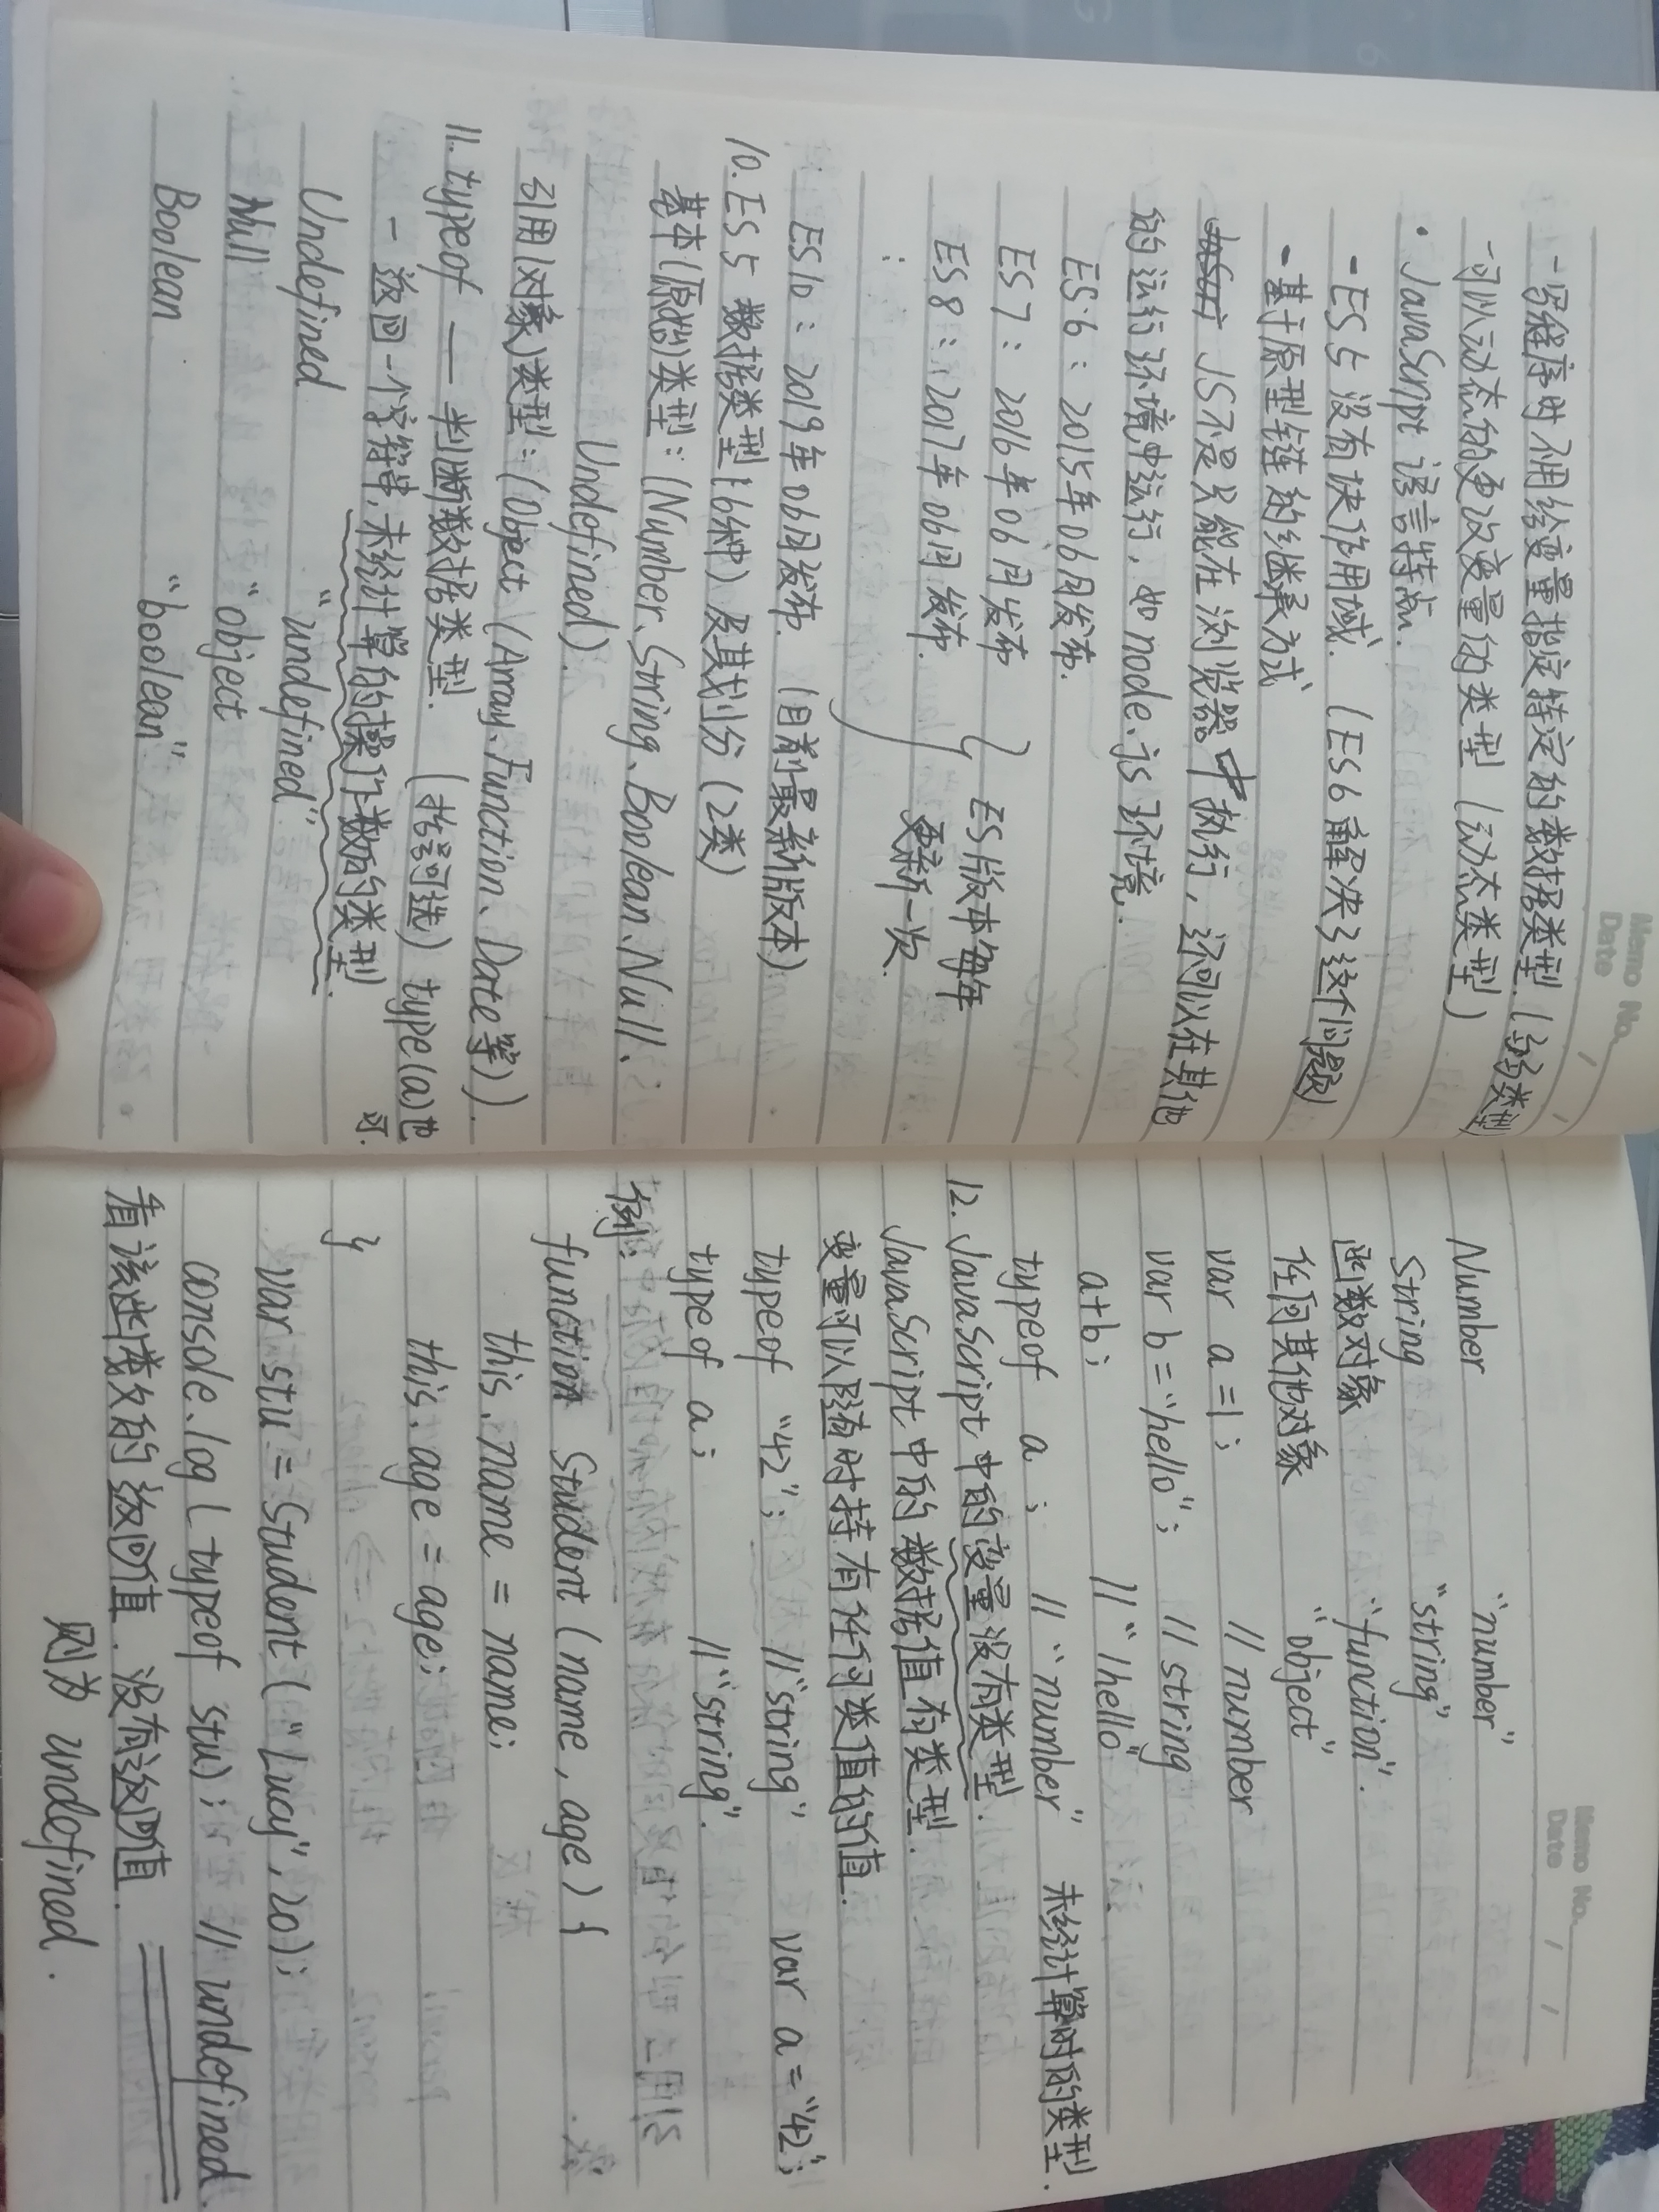 Memo No.
Date / /
- 写程序时不用给变量指定特定的数据类型.(弱类型)
- 可以动态的更改变量的类型 (动态类型)
· JavaScript 语言特点.
- ES5 没有块作用域. (ES6 解决了这个问题)
- 基于原型链的继承方式
JS不是只能在浏览器中执行,还可以在其他
的运行环境中运行,如node.js环境.
ES6: 2015年06月发布.
ES7: 2016年06月发布
ES版本每年
ES8: 2017年06月发布.
更新一次.
⋮
ES10: 2019年06月发布. (目前最新版本)
10. ES5 数据类型(6种)及其划分(2类)
基本(原始)类型:(Number、String、Boolean、Null、
Undefined).
引用(对象)类型:(Object (Array、Function、Date等)).
11. typeof —— 判断数据类型. (括号可选) type(a)也
可.
- 返回一个字符串,未经计算的操作数的类型.
Undefined "undefined"
Null "object
Boolean "boolean"
Memo No.
Date / /
Number "number"
String "string"
函数对象 "function".
任何其他对象 "object"
var a=1; // number
var b="hello"; // string
a+b; // "1hello"
typeof a; // "number" 未经计算时的类型.
12. JavaScript 中的变量没有类型.
JavaScript 中的数据值有类型.
变量可以随时持有任何类值的值.
typeof "42"; // "string" var a="42";
typeof a; // "string".
例:
function Student (name, age) {
this.name = name;
this.age = age;
}
var stu = Student ("Lucy", 20);
console.log (typeof stu); // undefined.
看该函数的返回值.没有返回值.
则为 undefined.